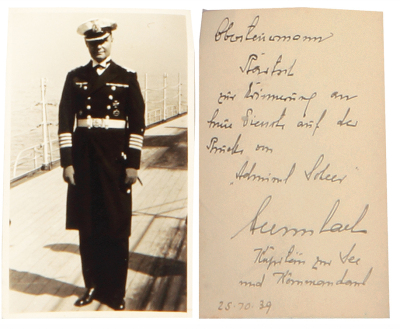 Obersteuermann
zur Erinnerung an
treue Dienste auf der
Brücke von
"Admiral Scheer"
Kapitän zur See
und Kommandant
25.10.39